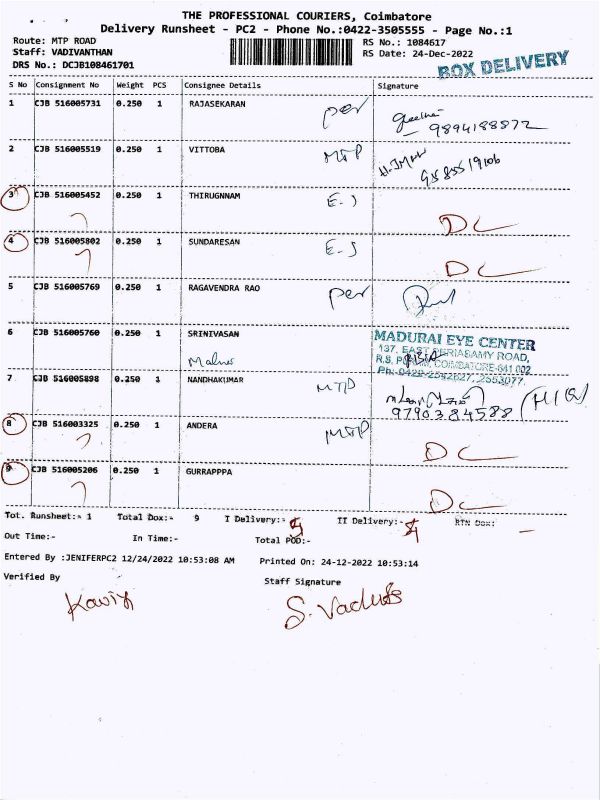 THE PROFESSIONAL COURIERS, Coimbatore
Delivery Runsheet - PC2 - Phone No.:0422-3505555 - Page No.:1
Route: MTP ROAD RS No.: 1084617
Staff: VADIVANTHAN RS Date: 24-Dec-2022
DRS No.: DCJB108461701 BOX DELIVERY
S No Consignment No Weight PCS Consignee Details Signature
1 CJB 516005731 0.250 1 RAJASEKARAN per
9894188872
2 CJB 516005519 0.250 1 VITTOBA MTP
9585519106
3 CJB 516005452 0.250 1 THIRUGNNAM E.J
DC
4 CJB 516005802 0.250 1 SUNDARESAN E.J
DC
5 CJB 516005769 0.250 1 RAGAVENDRA RAO per
6 CJB 516005760 0.250 1 SRINIVASAN
MADURAI EYE CENTER
137, EAST PERIASAMY ROAD,
R.S. PURAM, COIMBATORE-641 002.
Ph: 0422-2542827, 2553077.
7 CJB 516005898 0.250 1 NANDHAKUMAR MTP
9790384588
8 CJB 516003325 0.250 1 ANDERA MTP
DC
9 CJB 516005206 0.250 1 GURRAPPPA
DC
Tot. Runsheet:- 1 Total Dox:- 9 I Delivery:- 5 II Delivery:- 4 RTN Dox: -
Out Time:- In Time:- Total POD:-
Entered By :JENIFERPC2 12/24/2022 10:53:08 AM Printed On: 24-12-2022 10:53:14
Verified By Staff Signature